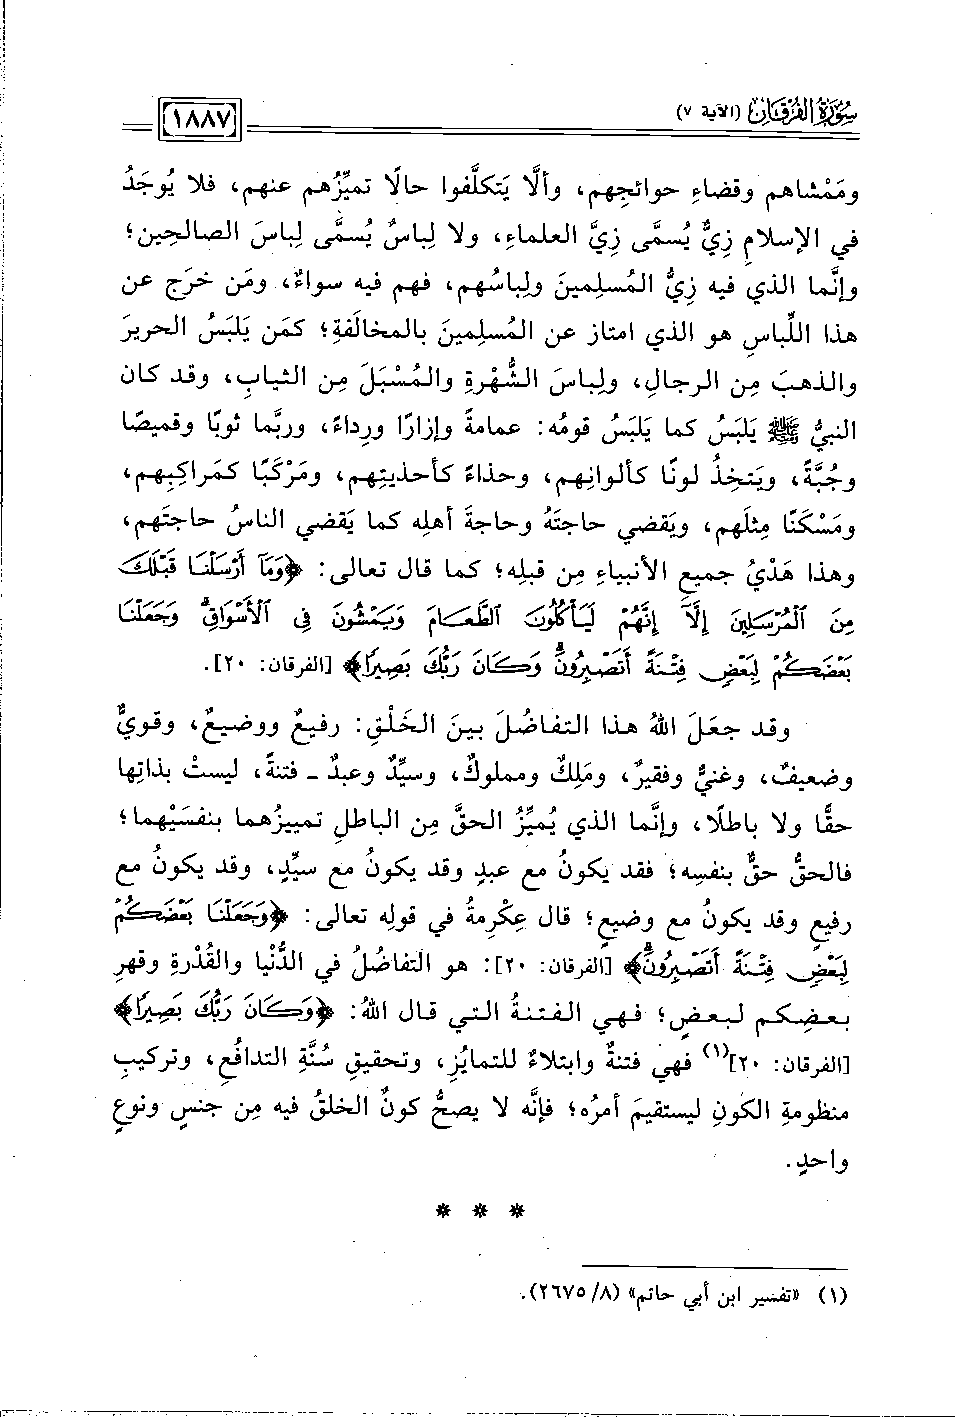 سُورَةُ الفُرْقَان (الآية ٧)
١٨٨٧
ومَمْشاهم وقضاءِ حوائجِهم، وألَّا يَتكلَّفوا حالًا تميِّزُهم عنهم، فلا يُوجَدُ
في الإسلامِ زِيٌّ يُسمَّى زِيَّ العلماءِ، ولا لِباسٌ يُسمَّى لِباسَ الصالحِين؛
وإنَّما الذي فيه زِيُّ المُسلِمينَ ولِباسُهم، فهم فيه سواءٌ، ومَن خرَج عن
هذا اللِّباسِ هو الذي امتاز عن المُسلِمينَ بالمخالَفةِ؛ كمَن يَلبَسُ الحريرَ
والذهبَ مِن الرجالِ، ولِباسَ الشُّهْرةِ والمُسْبَلَ مِن الثيابِ، وقد كان
النبيُّ ﷺ يَلبَسُ كما يَلبَسُ قومُه: عمامةً وإزارًا ورِداءً، وربَّما ثوبًا وقميصًا
وجُبَّةً، ويَتخِذُ لونًا كألوانِهم، وحذاءً كأحذيتِهم، ومَرْكَبًا كمَراكِبِهم،
ومَسْكَنًا مِثلَهم، ويَقضي حاجتَهُ وحاجةَ أهلِه كما يَقضي الناسُ حاجتَهم،
وهذا هَدْيُ جميعِ الأنبياءِ مِن قبلِه؛ كما قال تعالى: ﴿وَمَآ أَرْسَلْنَا قَبْلَكَ
مِنَ ٱلْمُرْسَلِينَ إِلَّآ إِنَّهُمْ لَيَأْكُلُونَ ٱلطَّعَامَ وَيَمْشُونَ فِى ٱلْأَسْوَاقِۗ وَجَعَلْنَا
بَعْضَكُمْ لِبَعْضٍ فِتْنَةً أَتَصْبِرُونَۗ وَكَانَ رَبُّكَ بَصِيرًا﴾ [الفرقان: ٢٠].
وقد جعَلَ اللهُ هذا التفاضُلَ بينَ الخَلْقِ: رفيعٌ ووضيعٌ، وقويٌّ
وضعيفٌ، وغنيٌّ وفقيرٌ، ومَلِكٌ ومملوكٌ، وسيِّدٌ وعبدٌ - فتنةً، ليستْ بذاتِها
حقًّا ولا باطلًا، وإنَّما الذي يُميِّزُ الحقَّ مِن الباطلِ تمييزُهما بنفسَيْهما؛
فالحقُّ حقٌّ بنفسِه؛ فقد يكونُ مع عبدٍ وقد يكونُ مع سيِّدٍ، وقد يكونُ مع
رفيعٍ وقد يكونُ مع وضيعٍ؛ قال عِكْرِمةُ في قولِه تعالى: ﴿وَجَعَلْنَا بَعْضَكُمْ
لِبَعْضٍ فِتْنَةً أَتَصْبِرُونَۗ﴾ [الفرقان: ٢٠]: هو التفاضُلُ في الدُّنْيا والقُدْرةِ وقهرِ
بعضِكم لبعضٍ؛ فهي الفتنةُ التي قال اللهُ: ﴿وَكَانَ رَبُّكَ بَصِيرًا﴾
[الفرقان: ٢٠]⁽١⁾ فهي فتنةٌ وابتلاءٌ للتمايُزِ، وتحقيقِ سُنَّةِ التدافُعِ، وتركيبِ
منظومةِ الكونِ ليستقيمَ أمرُه؛ فإنَّه لا يصحُّ كونُ الخلقُ فيه مِن جنسٍ ونوعٍ
واحدٍ.
* * *
(١) «تفسير ابن أبي حاتم» (٨/ ٢٦٧٥).